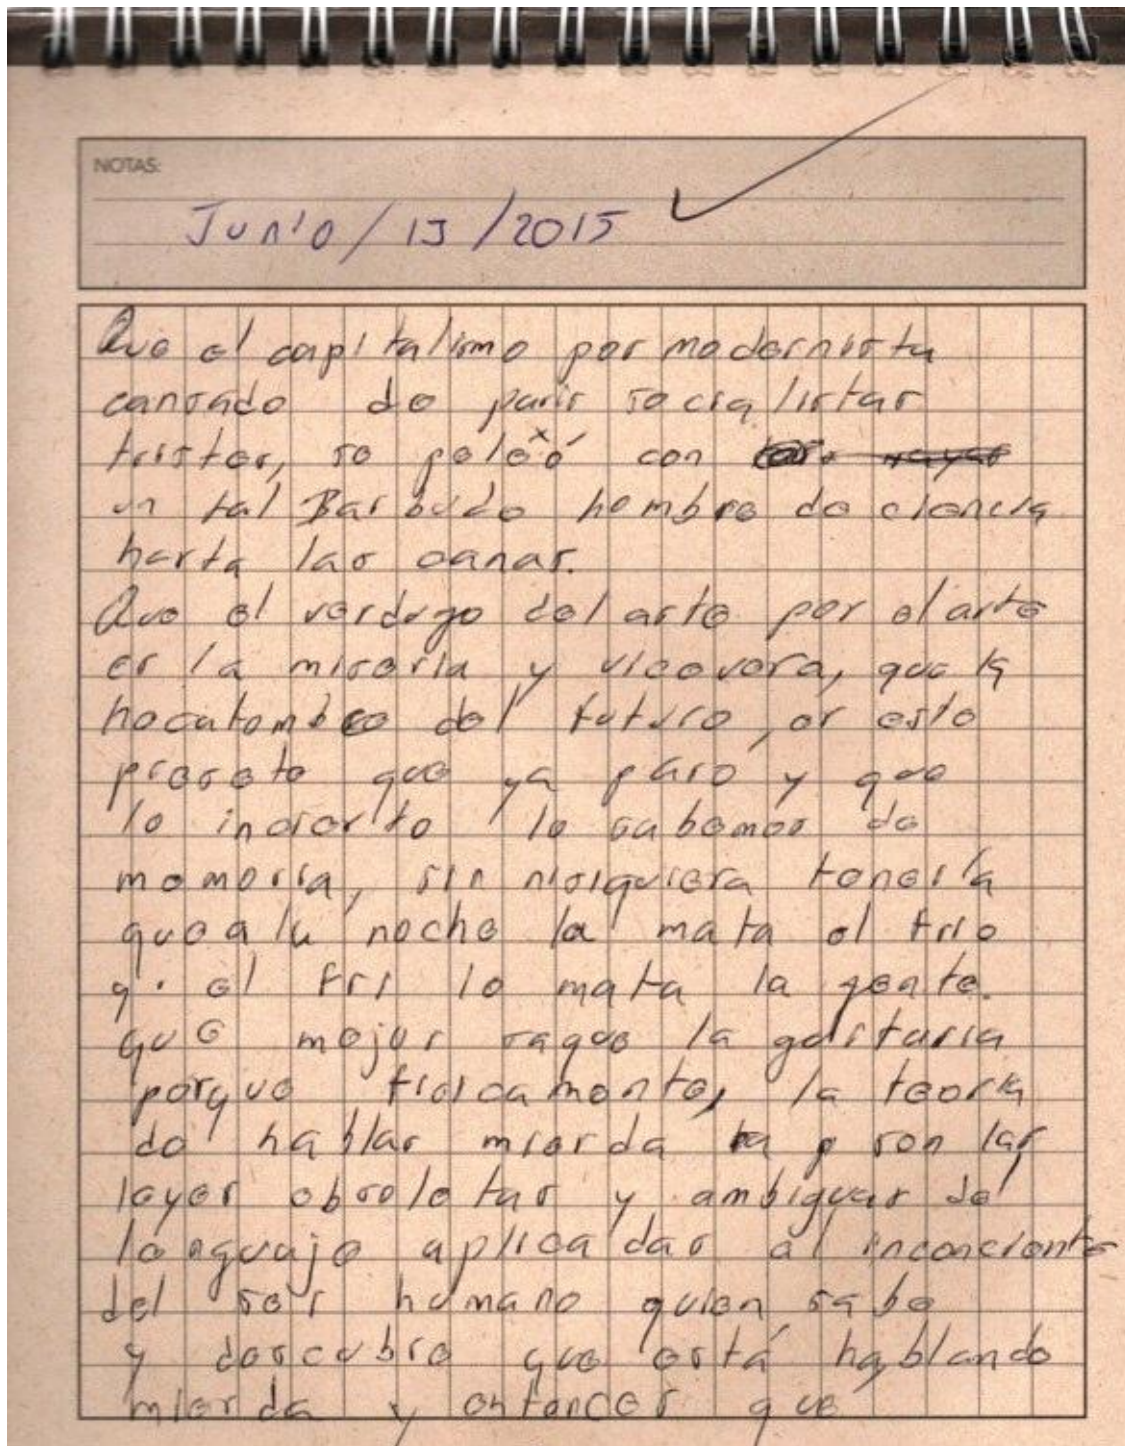 NOTAS:
Junio/13/2015
Que el capitalismo por modernista
cansado de parir socialistas
tristes, se peleó con
un tal Barbudo hombre de ciencia
hasta las canas.
Que el verdugo del arte por el arte
es la miseria y viceversa, que la
hecatombe del futuro, es este
que ya paró y que
lo incierto lo sabemos de
memoria, sin nisiquiera tenerla
que a la noche la mata el frio
q. el fri lo mata la gente.
que mejor saque la
porque fisicamente, la teoria
de hablar mierda son las
leyes obsoletas y ambiguas del
lenguaje aplicadas al inconciente
del ser humano quien sabe
y descubre que está hablando
mierda y entonces que